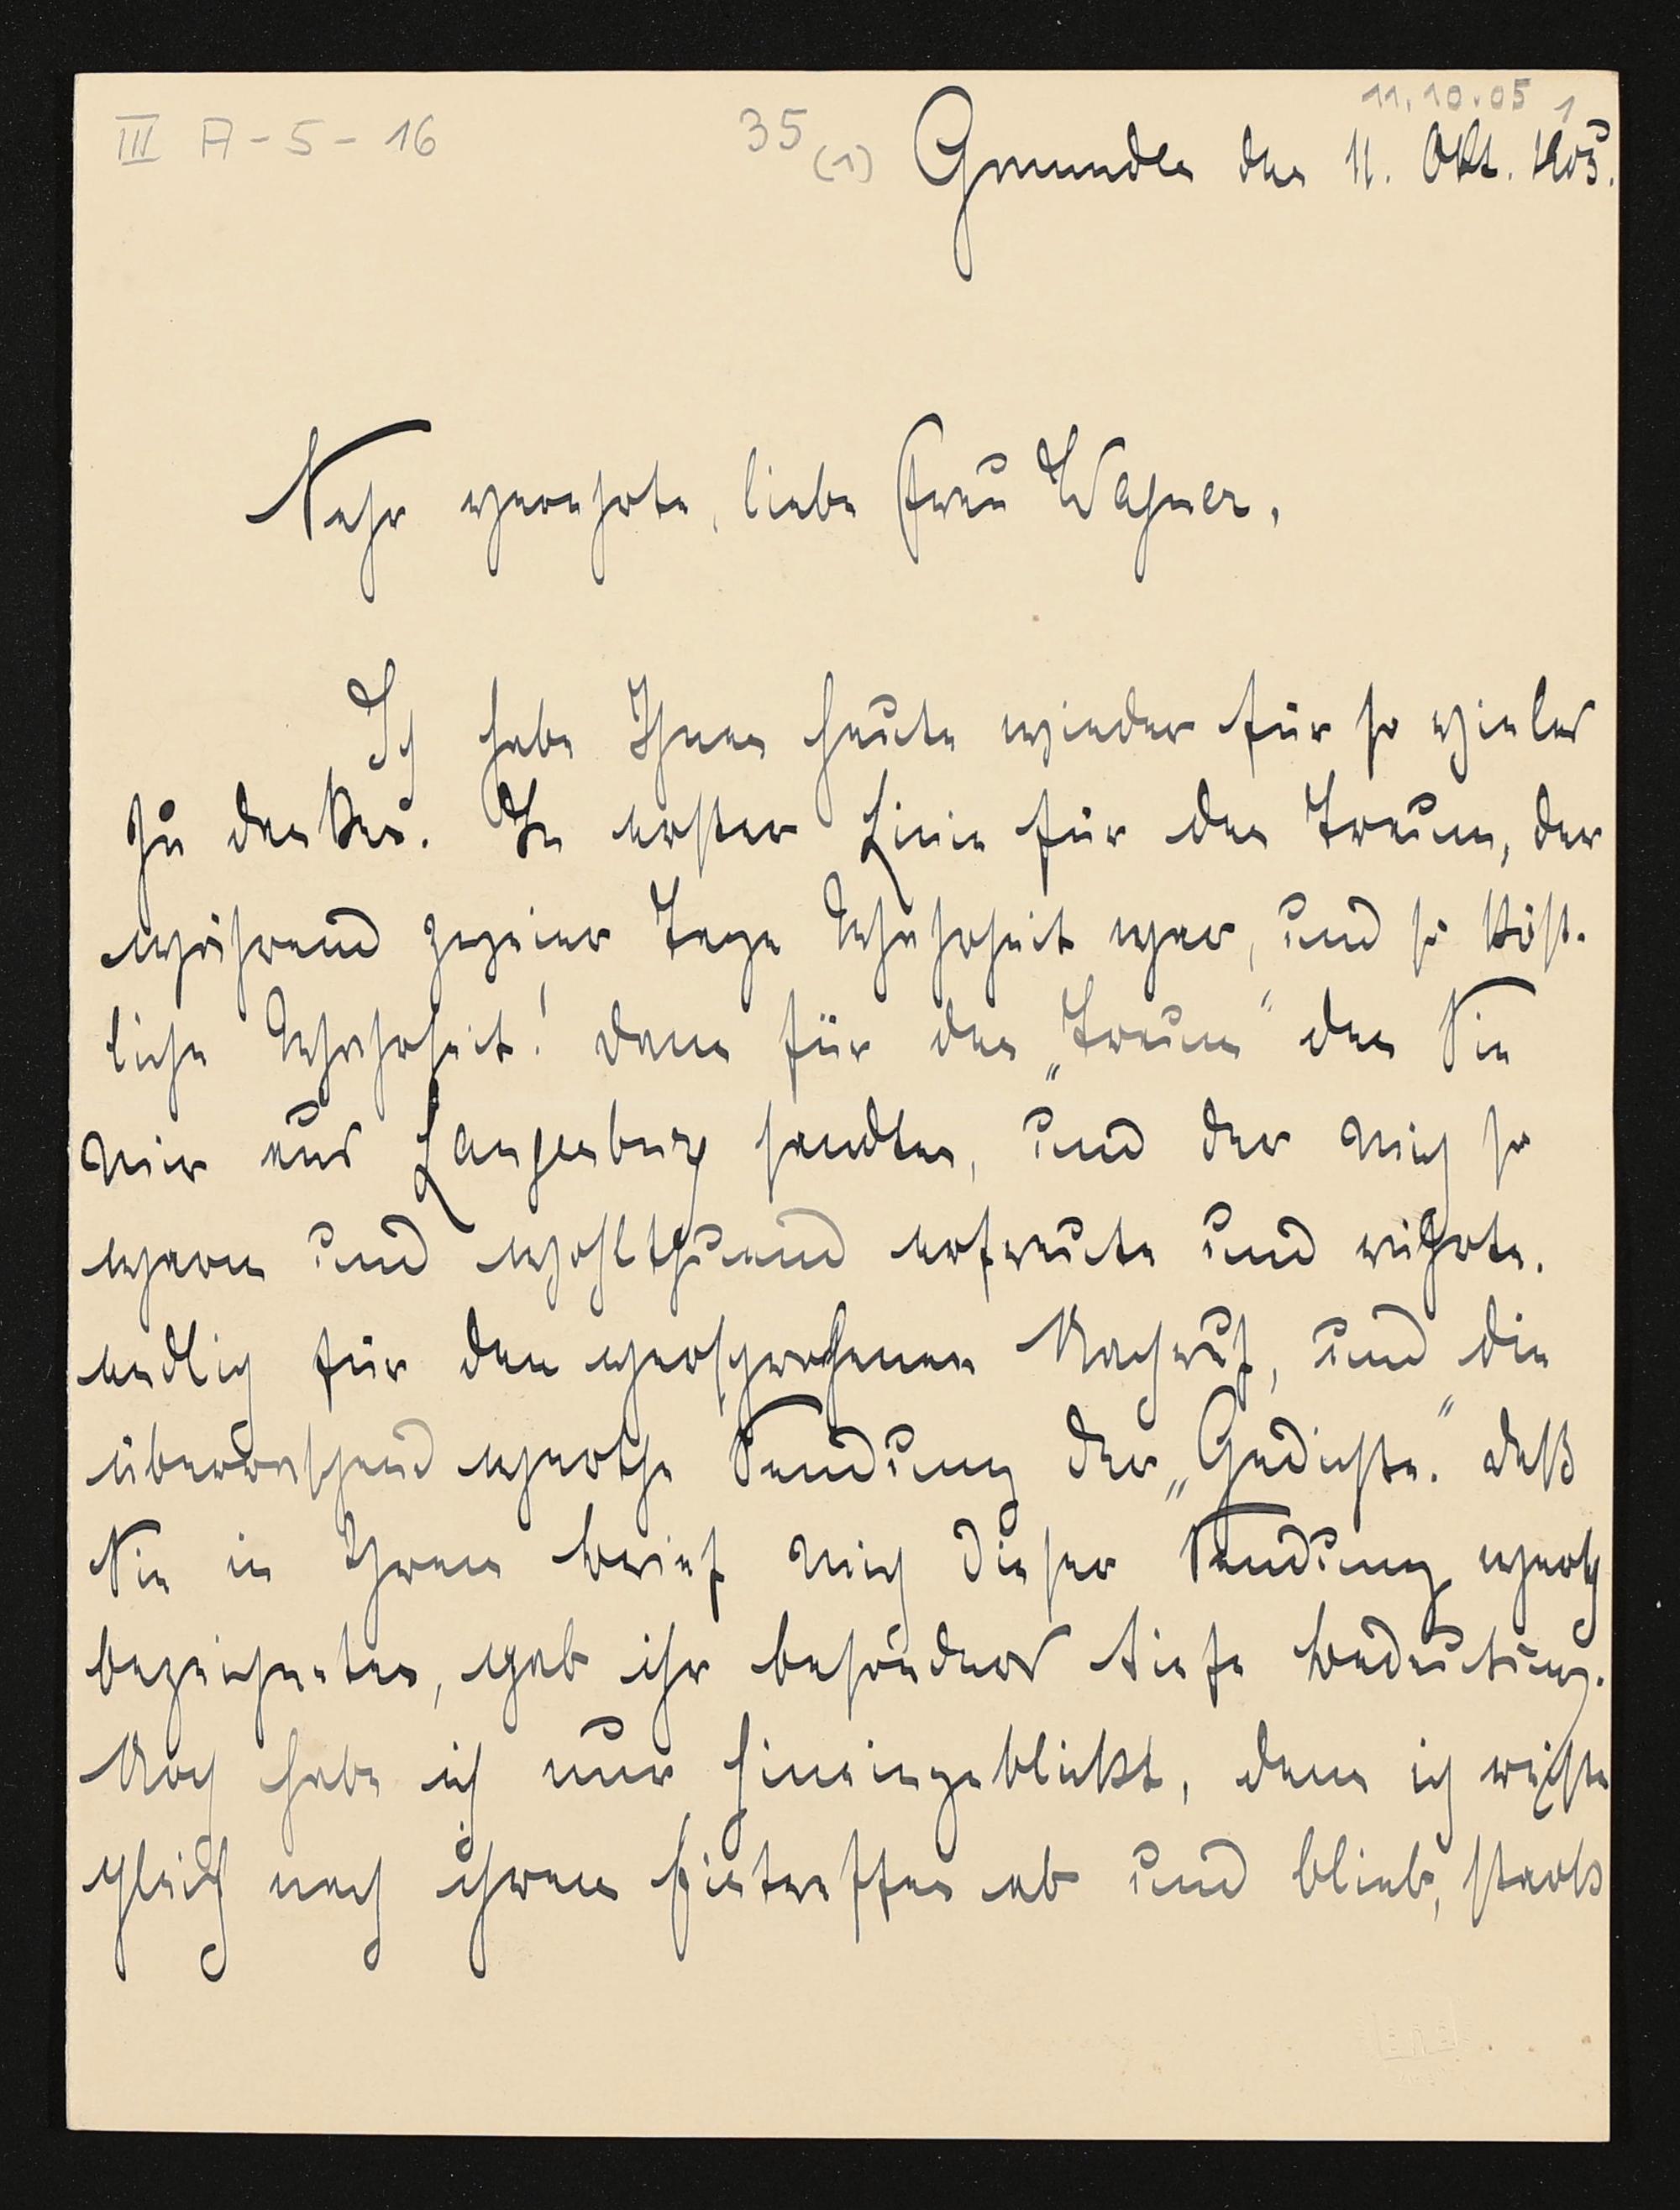 11.10.05 1
III A-5-16
35 (1)
Gmunden den 11. Okt. 1905.
Sehr verehrte, liebe Frau Wagner,
Ich habe Ihnen heute wieder für so vieles
zu danken. In erster Linie für den Traum, der
während zweier Tage Wahrheit war, und so köst-
liche Wahrheit! dann für den „Traum" den Sie
mir aus Langenburg sandten, und der mich so
warm und wohlthuend erfreute und rührte.
endlich für den versprochenen Nachruf, und die
überraschend werthe Sendung der „Gedichte." daß
Sie in Ihrem Brief mich dieser Sendung werth
bezeichneten, gab ihr besonders tiefe Bedeutung.
Noch habe ich nur hineingeblickt, denn ich reiste
gleich nach ihrem Eintreffen ab und blieb, stark